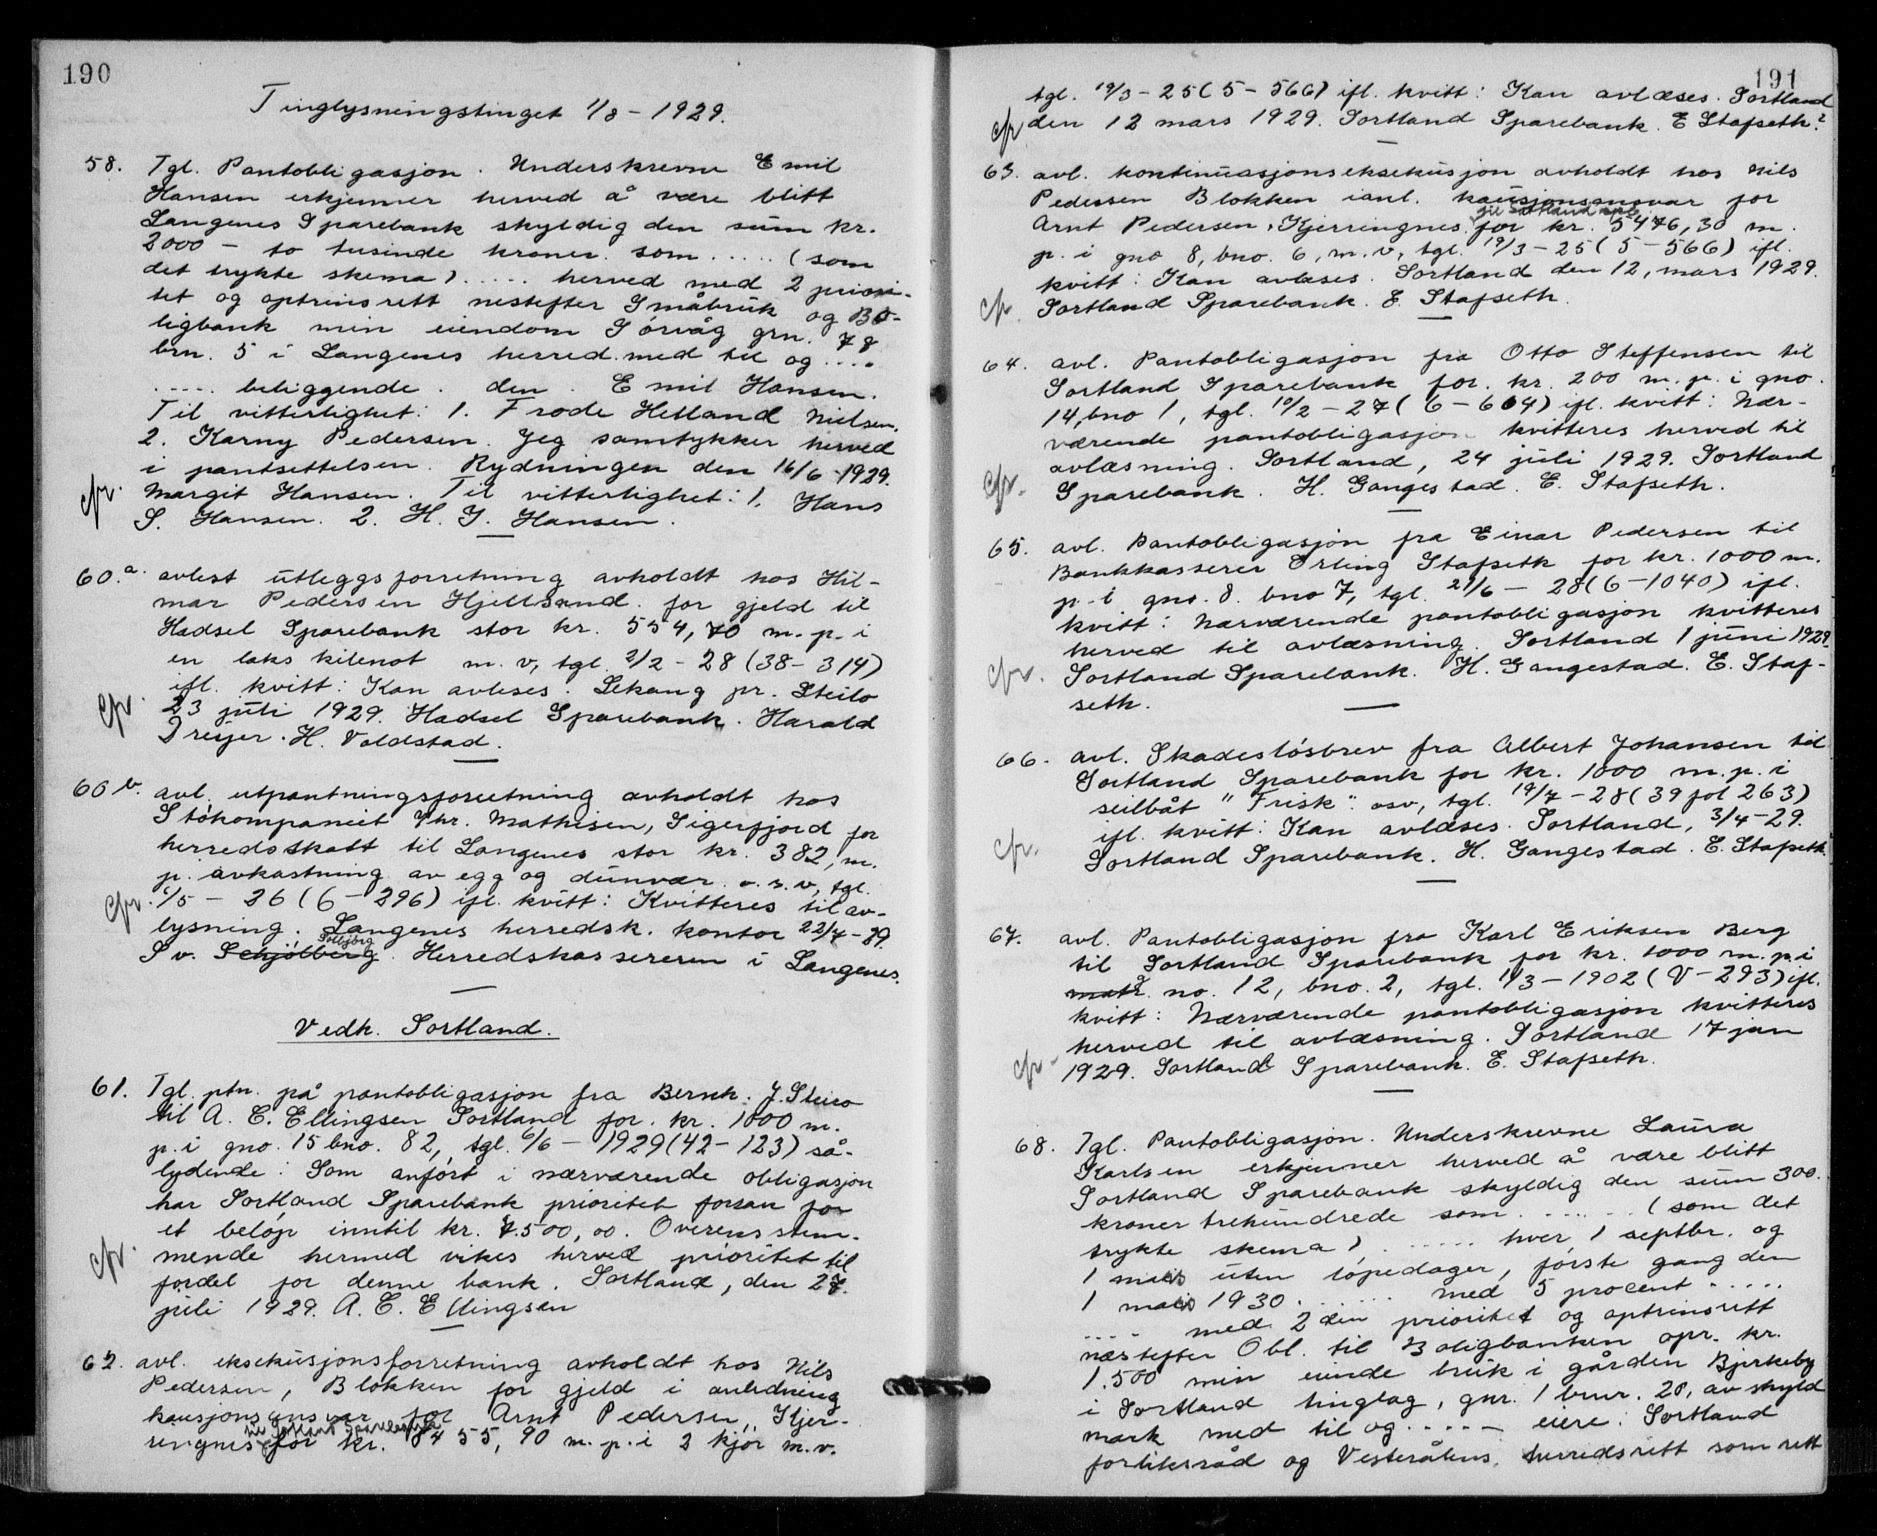 190
Tinglysningstinget 1/8 - 1929.
58. Tgl. Pantobligasjon. Underskrevne Emil
Hansen erkjenner herved å være blitt
Langenes Sparebank skyldig den sum kr.
2000 - to tusinde kroner som ..... (som
det trykte skema) ..... herved med 2 priori-
tet og optrinsrett nestefter Småbruk og Bo-
ligbank min eiendom Sørvåg grn. 78
brn. 5 i Langenes herred med til og ....
..... beliggende. den. Emil Hansen.
Til vitterlighet: 1. Frode Hetland Nielsen.
2. Karny Pedersen. Jeg samtykker herved
i pantsettelsen. Rydningen den 16/6-1929.
cfr. Margit Hansen. Til vitterlighet: 1. Hans
S. Hansen. 2. H. J. Hansen.
60.a. avlest utleggsforretning avholdt hos Hil-
mar Pedersen Hjellsand for gjeld til
Hadsel Sparebank stor kr. 554,70 m. p. i
en laks kilenot m. v, tgl. 2/2 - 28 (38 - 314)
ifl. kvitt: Kan avleses. Sekang pr. Steilo
cfr. 23 juli 1929. Hadsel Sparebank. Harald
Dreyer. H. Voldstad.
60 b. avl. utpantningsforretning avholdt hos
Stókompaniet v/hr. Mathisen, Sigerfjord for
herredsskatt til Langenes stor kr. 382, m.
p. avkastning av egg og dunvær o. s. v, tgl.
cfr. 1/5 - 26 (6 - 296) ifl. kvitt: Kvitteres til av-
lysning. Langenes herredsk. kontor 22/7 - 29.
Solbjörg
S v. Schjölberg. Herredskassereren i Langenes.
Vedk. Sortland.
61. Tgl. ptn. på pantobligasjon fra Bernh. J. Steiro
til A. C. Ellingsen Sortland for kr. 1000 m.
p. i gno. 15 bno. 82, tgl. 6/6 - 1929 (42 - 123) så-
lydende: Som anført i nærværende obligasjon
har Sortland Sparebank prioritet foran for
et beløp inntil kr. 7.500,00. Overensstem-
cfr. mende hermed vikes herved prioritet til
fordel for denne bank. Sortland, den 27.
juli 1929. A. C. Ellingsen
62. avl. eksekusjonsforretning avholdt hos Nils
Pedersen, Blokken for gjeld i anledning
kausjonsansvar for Arnt Pedersen, Kjer-
til Sortland Sparebank
ringnes for kr. 8455,90 m. p. i 2 kjør m. v.
191
tgl. 19/3 - 25 (5 - 566) ifl. kvitt: Kan avlæses. Sortland
cfr den 12 mars 1929. Sortland Sparebank. E Stafseth.
63. avl. kontinuasjonseksekusjon avholdt hos Nils
Pedersen Blokken ianl. kausjonsansvar for
til Sortland spb.
Arnt Pedersen, Kjerringnes. for kr. 5476,30 m.
p. i gno 8, bno. 6, m. v, tgl. 19/3 - 25 (5 - 566) ifl.
kvitt: Kan avleses. Sortland den 12, mars 1929.
cfr. Sortland Sparebank. E. Stafseth.
64. avl. Pantobligasjon fra Otto Steffensen til
Sortland Sparebank for kr. 200 m. p. i gno.
14, bno 1, tgl. 10/2 - 27 (6 - 604) ifl. kvitt: Nær-
værende pantobligasjon kvitteres herved til
avlæsning. Sortland, 24 juli 1929. Sortland
cfr. Sparebank. H. Gangestad. E. Stafseth.
65. avl. Pantobligasjon fra Einar Pedersen til
Bankkasserer Erling Stafseth for kr. 1000 m.
p. i gno. 8. bno 7, tgl. 21/6 - 28 (6 - 1040) ifl.
kvitt: Nærværende pantobligasjon kvitteres
herved til avlæsning. Sortland 1 juni 1929.
cfr. Sortland Sparebank. H. Gangestad. E. Staf-
seth.
66. avl. Skadesløsbrev fra Albert Johansen til
Sortland Sparebank for kr. 1000 m. p. i
seilbåt "Frisk" osv, tgl. 19/7 - 28 (39 fol 263)
ifl. kvitt: Kan avlæses. Sortland, 3/4 - 29.
cfr. Sortland Sparebank. H. Gangestad. E. Stafseth.
67. avl. Pantobligasjon fra Karl Eriksen Berg
til Sortland Sparebank for kr. 1000 m. p. i
matr. no. 12, bno. 2, tgl. 1/3 - 1902 (V - 293) ifl.
kvitt: Nærværende pantobligasjon kvitteres
herved til avlæsning. Sortland 17 jan
cfr. 1929. Sortland Sparebank. E. Stafseth.
68. Tgl. Pantobligasjon. Underskrevne Laura
Karlsen erkjenner herved å være blitt
Sortland Sparebank skyldig den sum 300.
kroner trehundrede som ...... (som det
trykte skema) ..... hver 1 septbr. og
1 mars uten løpedager, første gang den
1 mars 1930 ..... med 5 procent .....
.... med 2 den prioritet og optrinsrett
næstefter Obl. til Boligbanken opr. kr.
1.500 min eiende bruk i gården Bjerkeby
i Sortland tinglag, gnr. 1 bnr. 28, av skyld
mark med til og ..... eiere: Sortland
forliksråd og Vesterålens herredsrett som rett